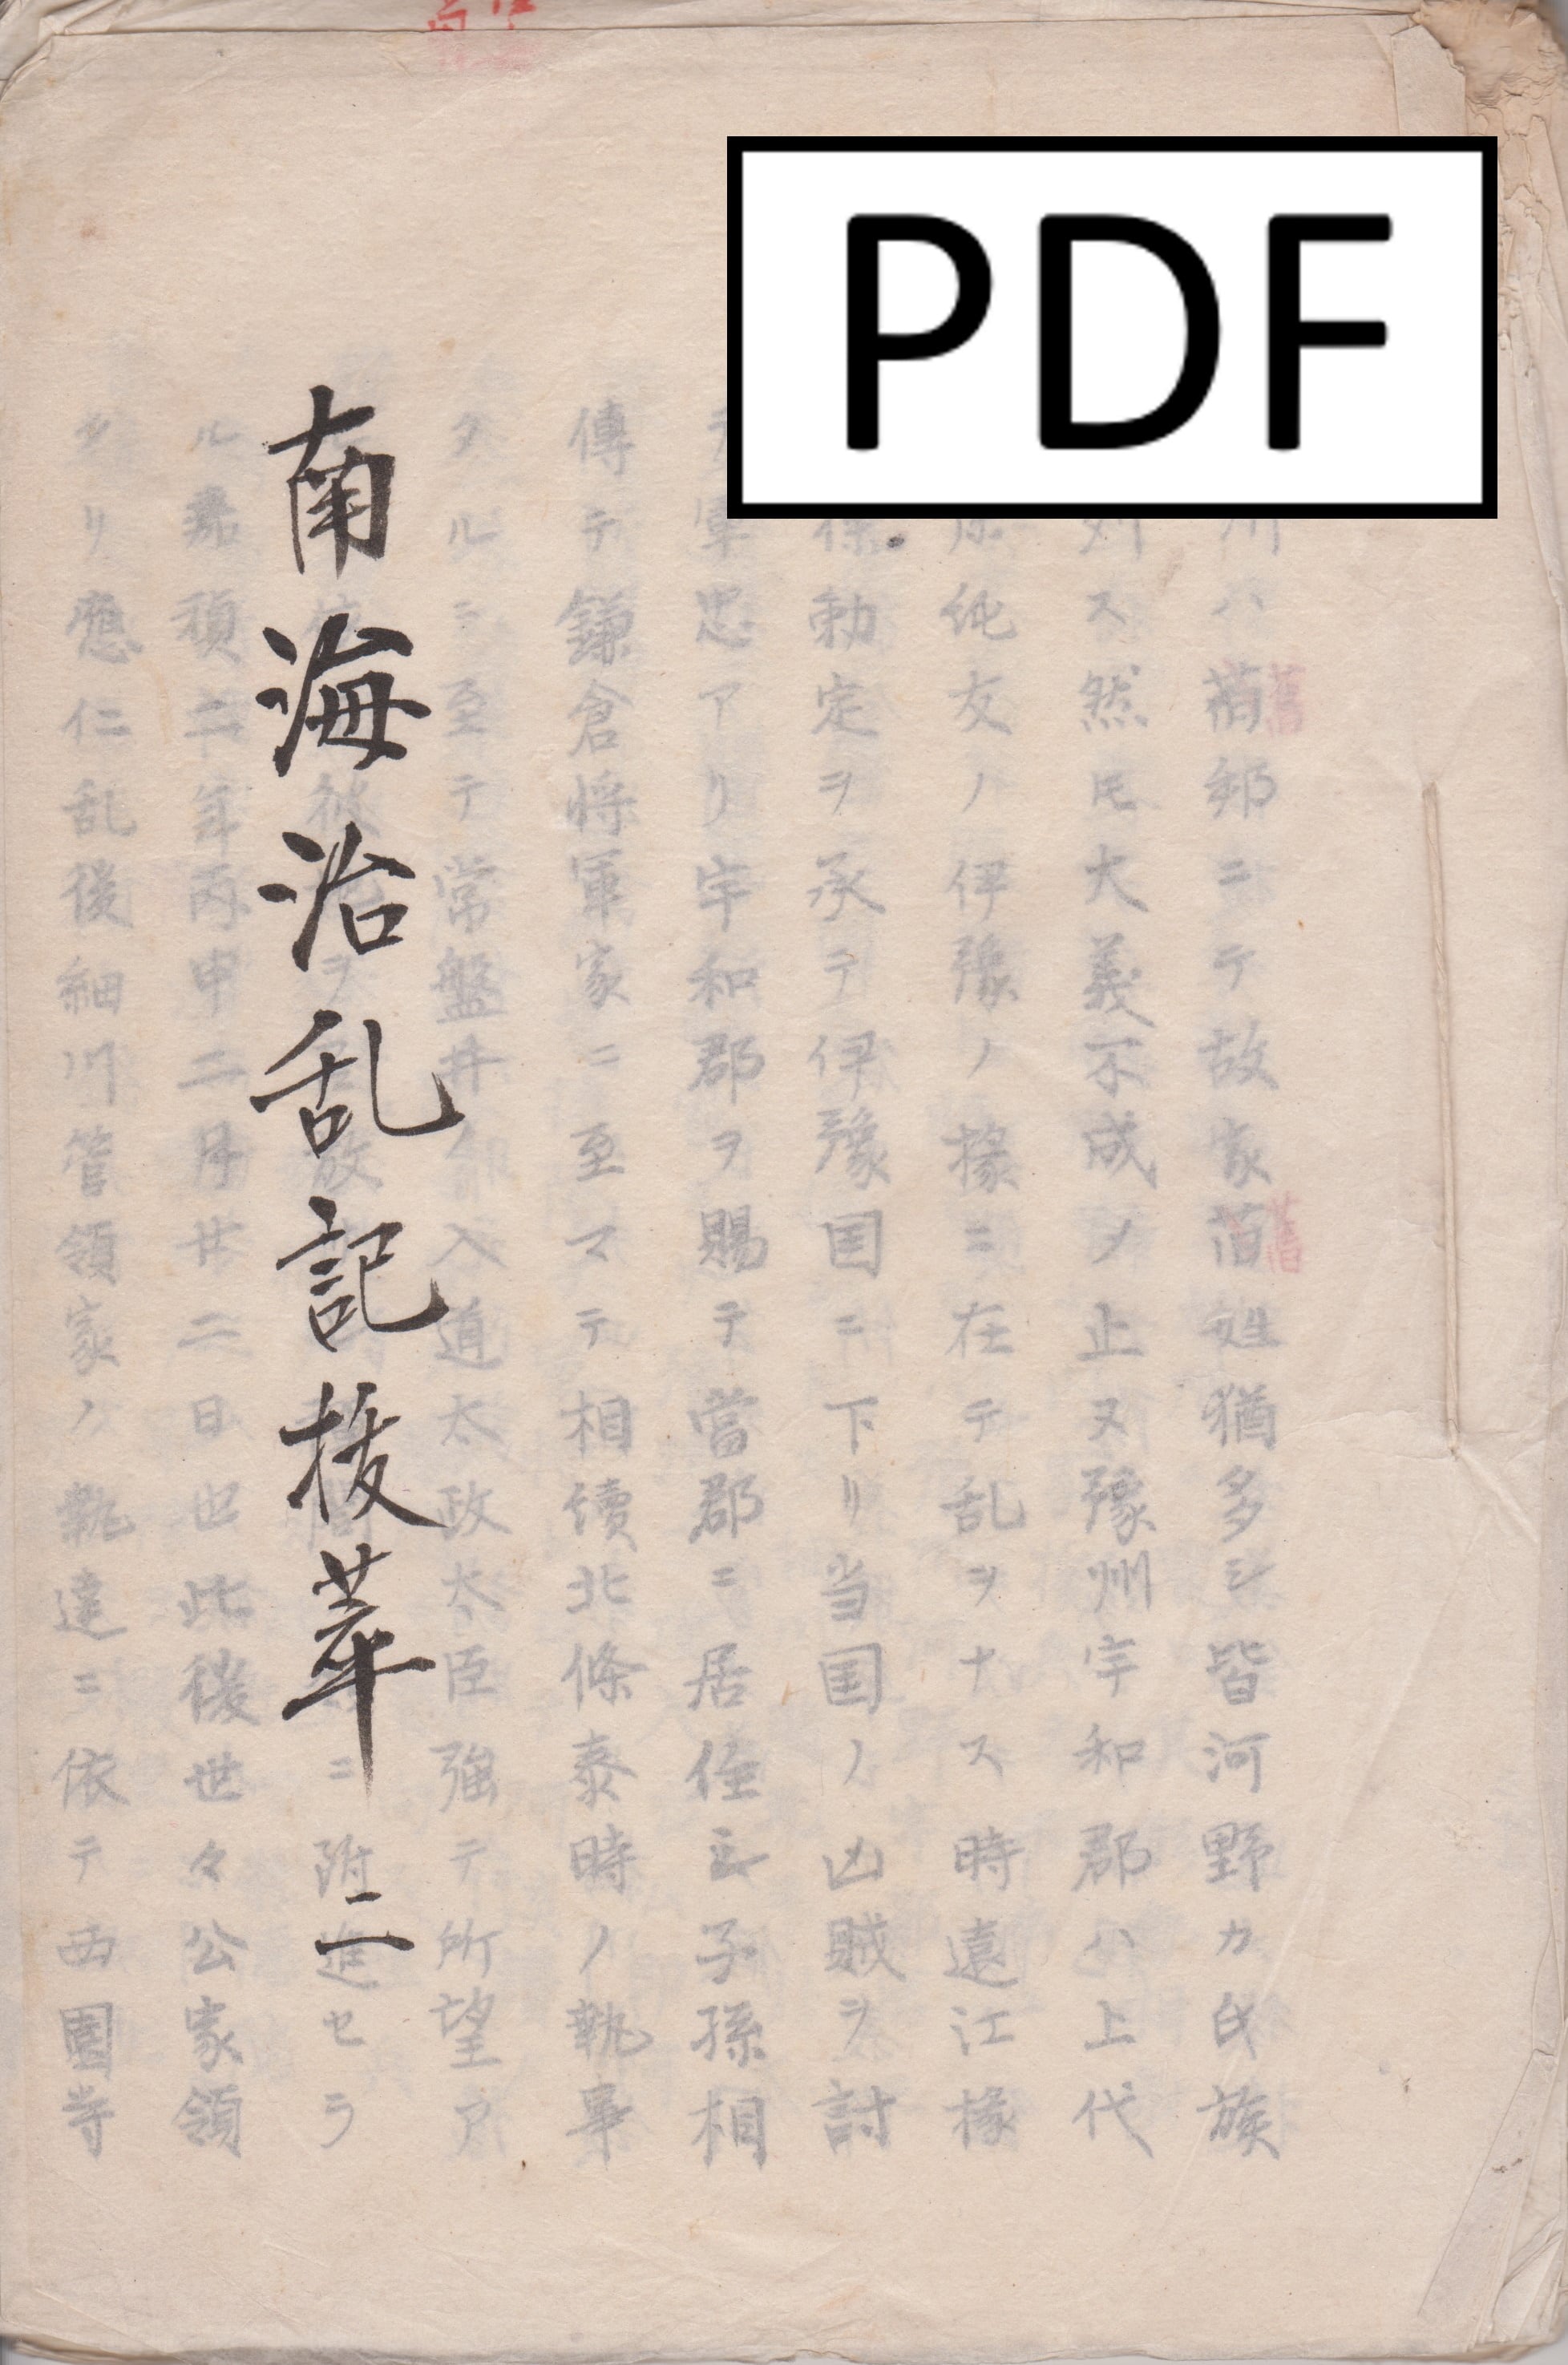 PDF
川ハ蕕邦ニテ故家苗姓猶多シ皆河野カ氏族
列ス然圧大義不成ノ止ヌ豫州宇和郡ハ上代
純友ノ伊豫ノ掾ニ在テ乱ヲナス時遠江掾
勅定ヲ承テ伊豫国ニ下リ当国ノ凶賊ヲ討
軍忠アリ宇和郡ヲ賜テ當郡ニ居住シ子孫相
傳テ鎌倉将軍家ニ至マテ相續北條泰時ノ執事
タルニ至テ常盤井入道太政大臣強テ所望ア
南海治乱記抜萃 二
ル嘉禎二年丙申二月廿二日也此後世々公家領
タリ應仁乱後細川管領家ノ執達ニ依テ西園寺